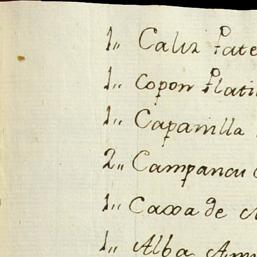 1,, Caliz Pate
1,, Copon Plati
1,, Capanilla
2,, Campanas
1,, Caxa de
1,, Alba Ami